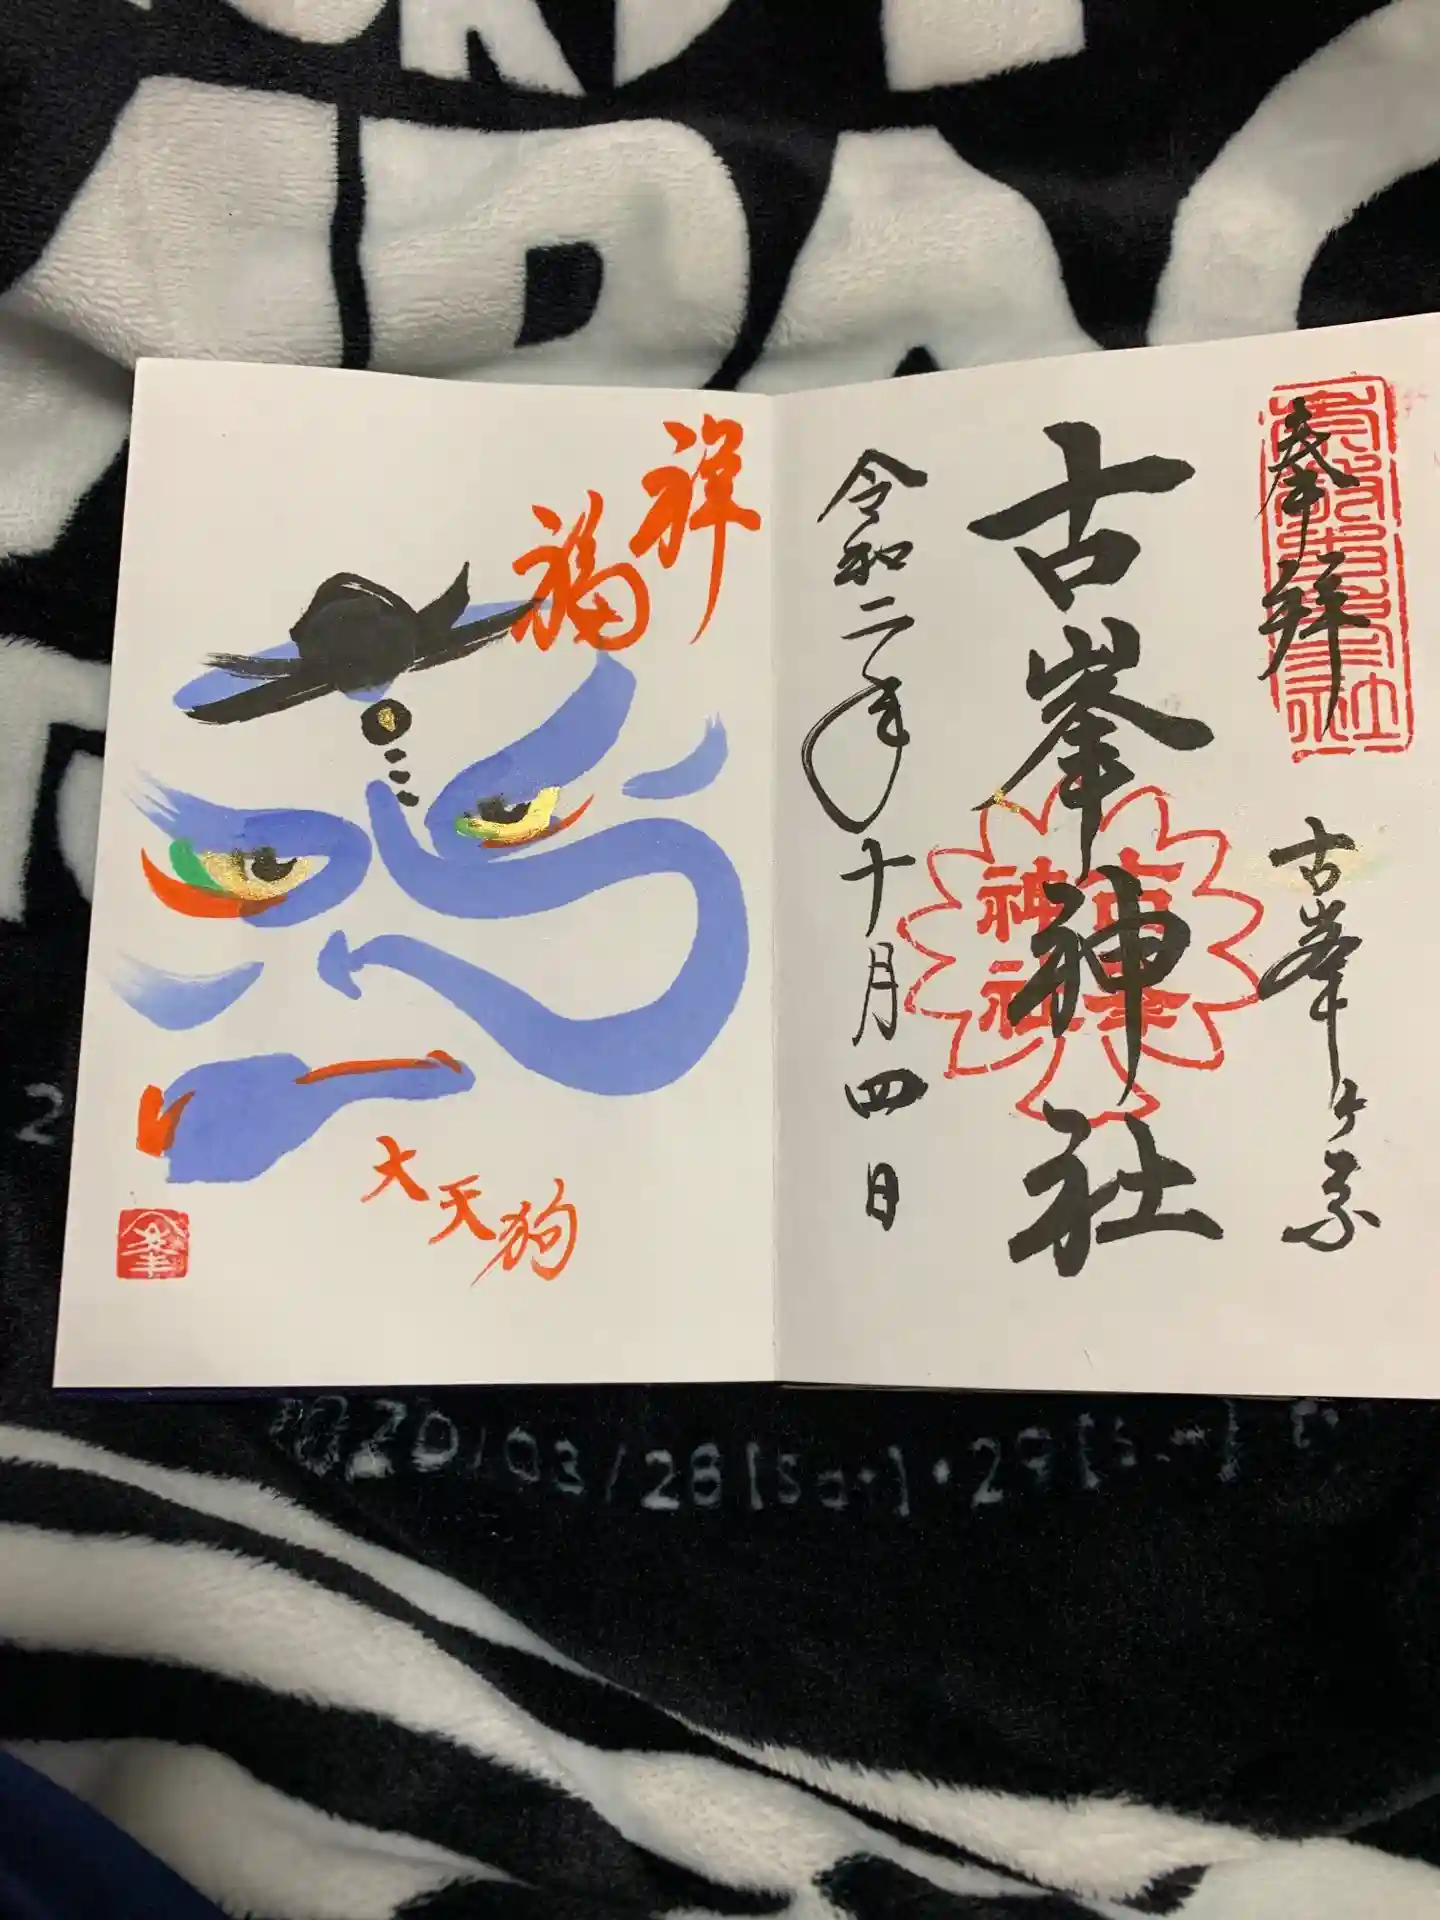 奉拝
古峯ヶ原
古峯神社
古峯
神社
令和二年十月四日
祥
福
大天狗
峯
2020/03/28[Sat]・29[Sun]